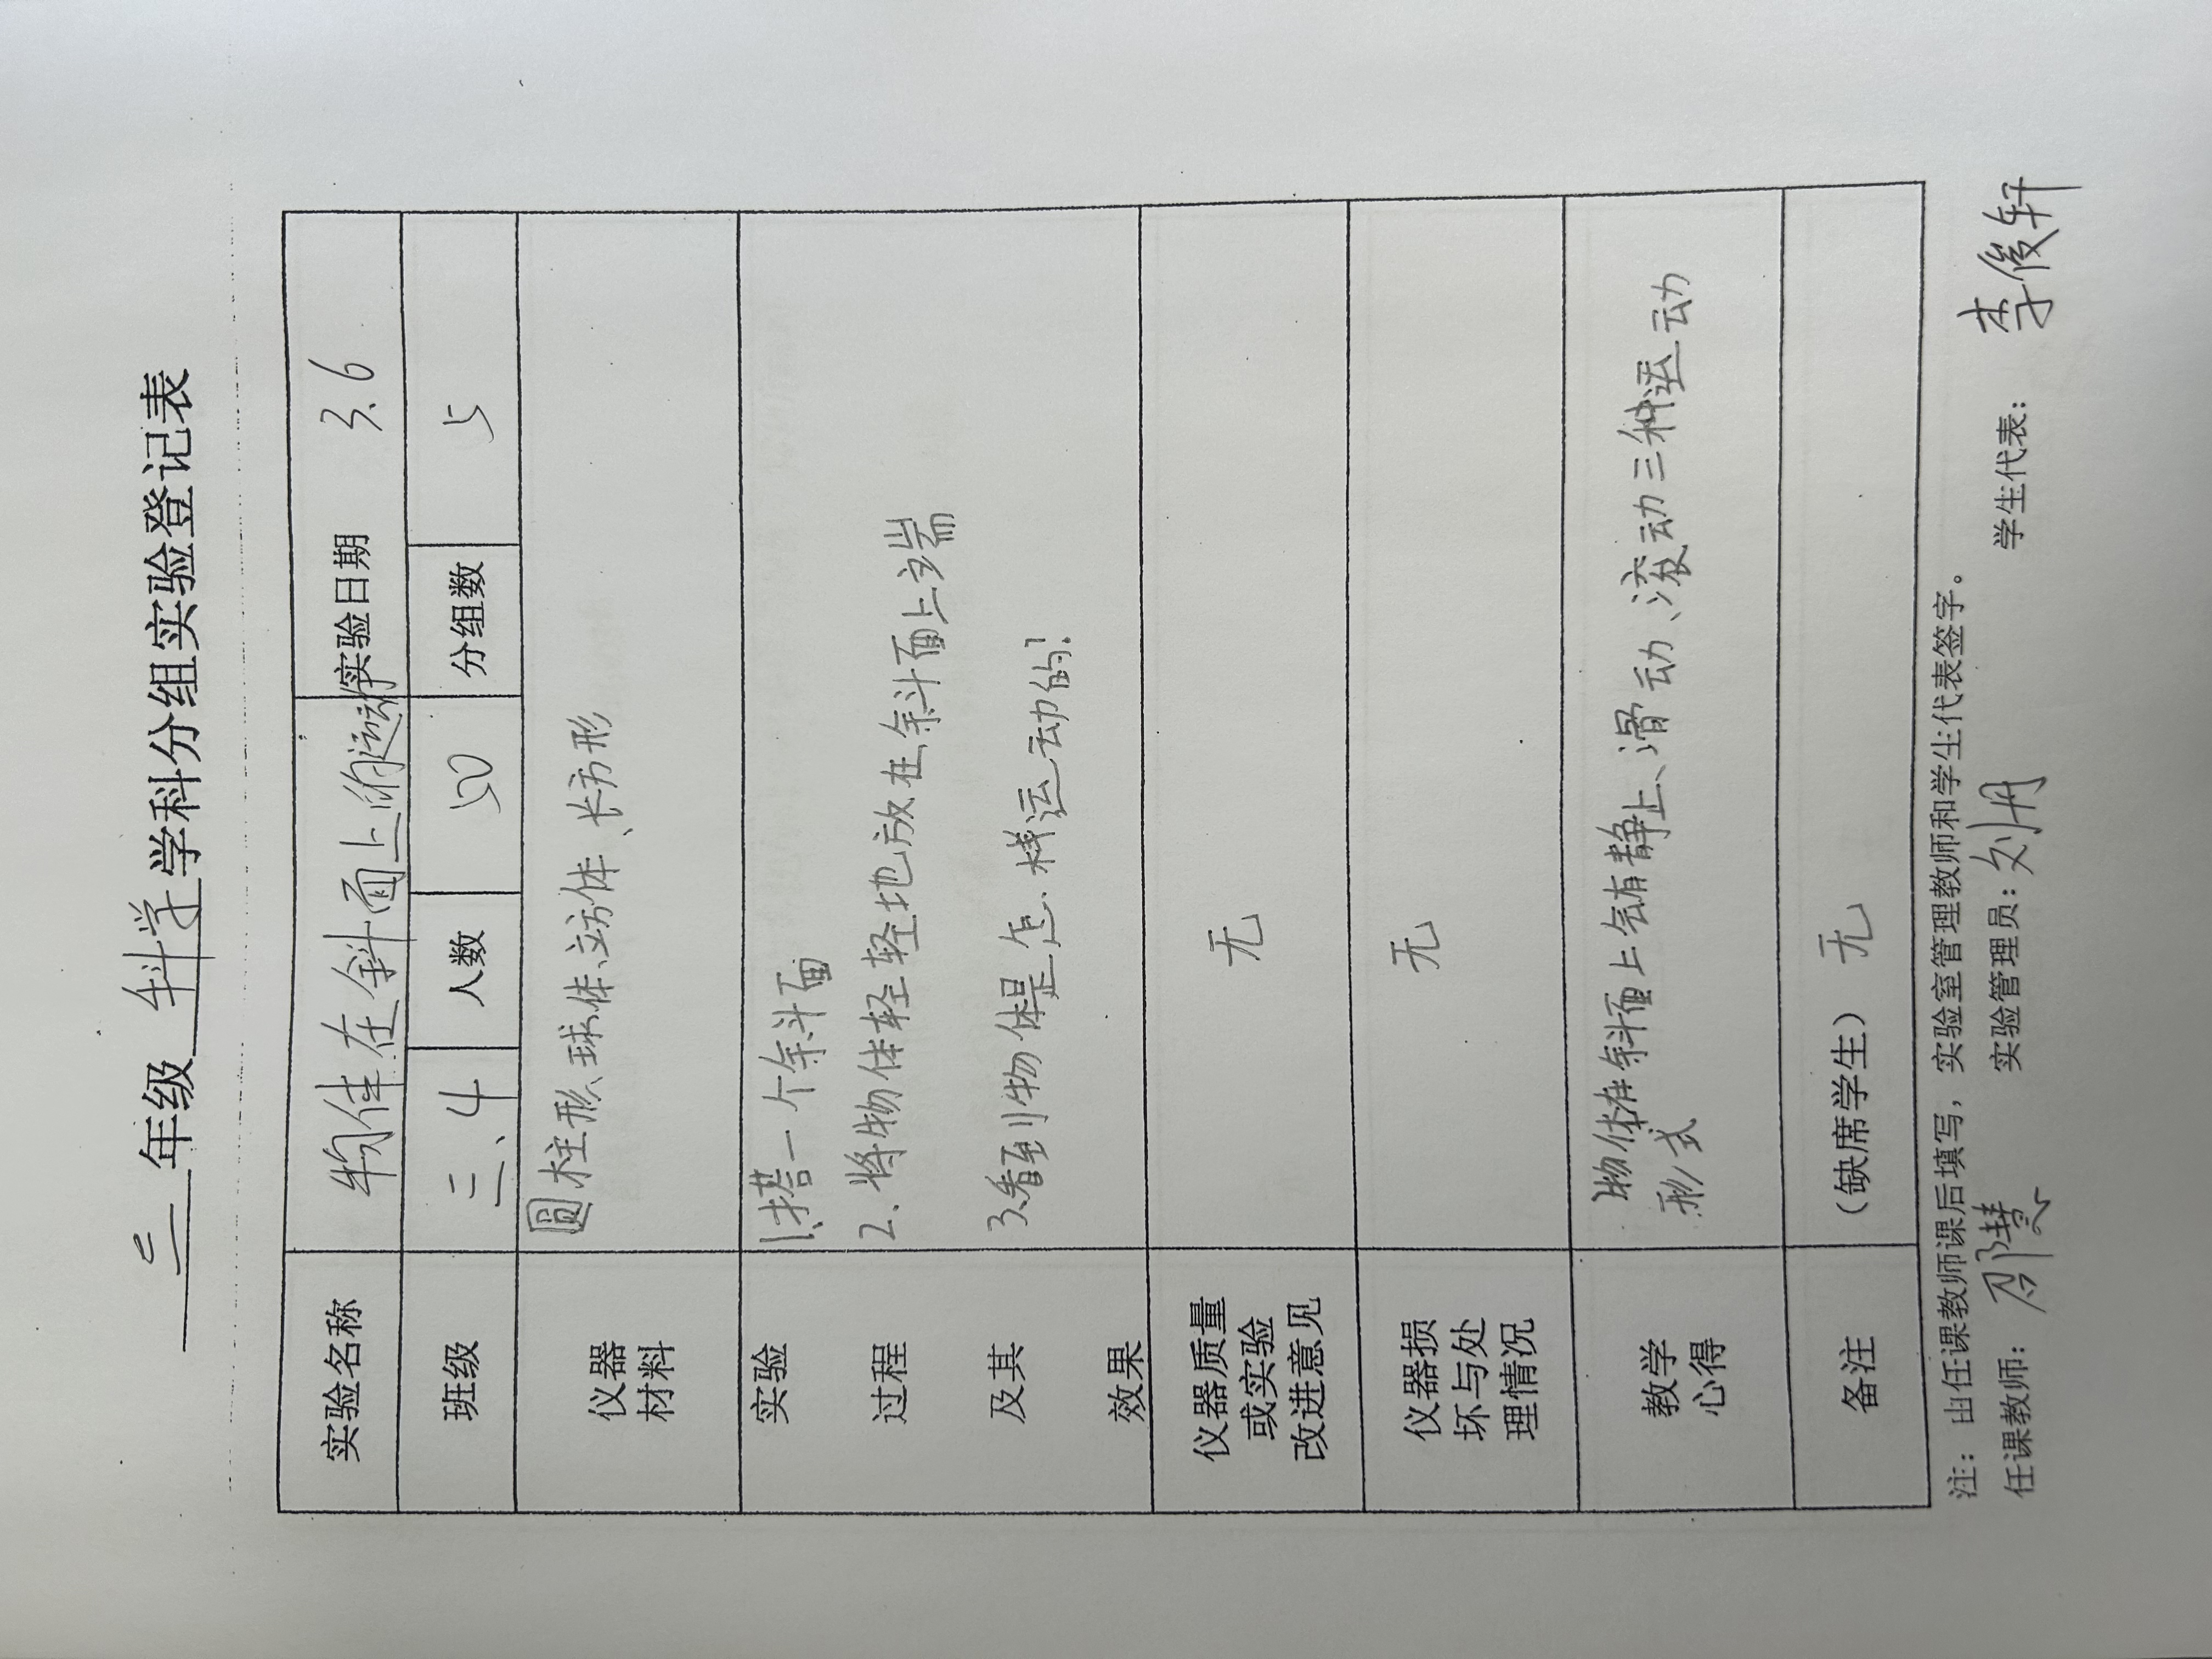 三 年级 科学 学科分组实验登记表
实验名称 物体在斜面上的运动 实验日期 3.6
班级 三、4 人数 50 分组数 5
仪器
材料
圆柱形、球体、立方体、长方形
实验
过程
及其
效果
1、搭一个斜面
2、将物体轻轻地放在斜面上端
3、看到物体是怎样运动的?
仪器质量
或实验
改进意见
无
仪器损
坏与处
理情况
无
教学
心得
物体在斜面上会有静止、滑动、滚动三种运动
形式
备注 (缺席学生) 无
注：由任课教师课后填写，实验室管理教师和学生代表签字。
任课教师： 邵慧 实验管理员：刘丹 学生代表： 李俊轩